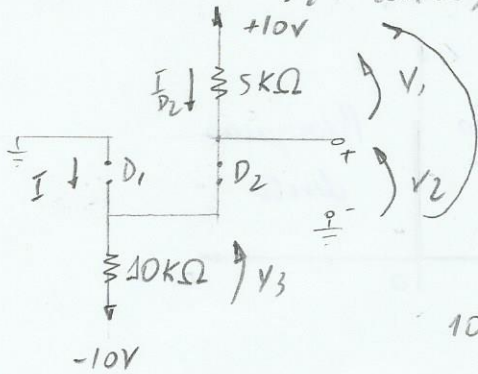 +10V
I
D2
5KΩ
V1
+
I
D1
D2
V2
-
10KΩ
V3
10
-10V